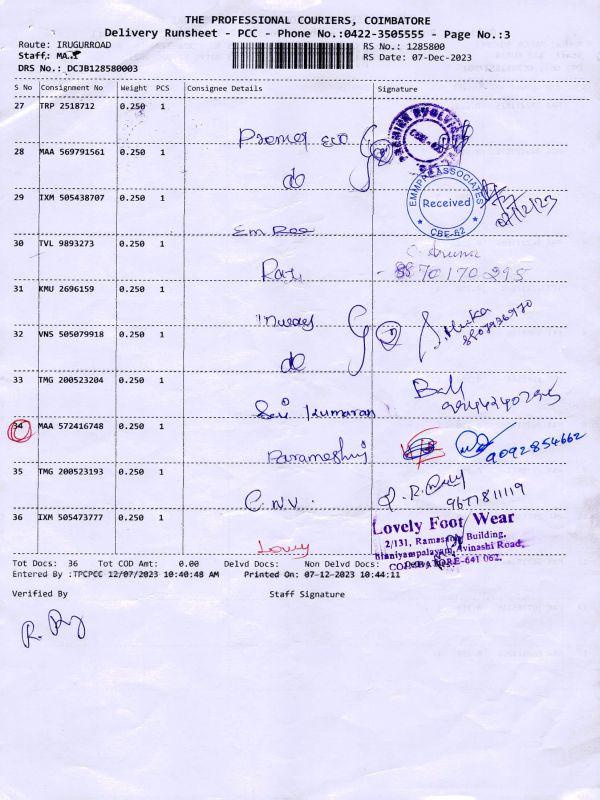 THE PROFESSIONAL COURIERS, COIMBATORE
Delivery Runsheet - PCC - Phone No.:0422-3505555 - Page No.:3
Route: IRUGURROAD
RS No.: 1285800
Staff.: MA
RS Date: 07-Dec-2023
DRS No.: DCJB128580003
S No Consignment No Weight PCS Consignee Details Signature
27 TRP 2518712 0.250 1
Premier eco
PREMIER EVOLVICS
28 MAA 569791561 0.250 1
do
EMMPRE ASSOCIATES
Received
CBE-62
07/12/23
29 IXM 505438707 0.250 1
Em Ree
30 TVL 9893273 0.250 1
Raj
C. Aruna
8870170295
31 KMU 2696159 0.250 1
32 VNS 505079918 0.250 1
do
33 TMG 200523204 0.250 1
Sri Kumaran
34 MAA 572416748 0.250 1
9092854662
35 TMG 200523193 0.250 1
C.N.V.
9677811119
36 IXM 505473777 0.250 1
Lovely Foot Wear
2/131, Ramasamy Building,
Chinniyampalayam, Avinashi Road,
COIMBATORE-641 062.
Tot Docs: 36 Tot COD Amt: 0.00 Delvd Docs: Non Delvd Docs:
Entered By :TPCPCC 12/07/2023 10:40:48 AM Printed On: 07-12-2023 10:44:11
Verified By Staff Signature